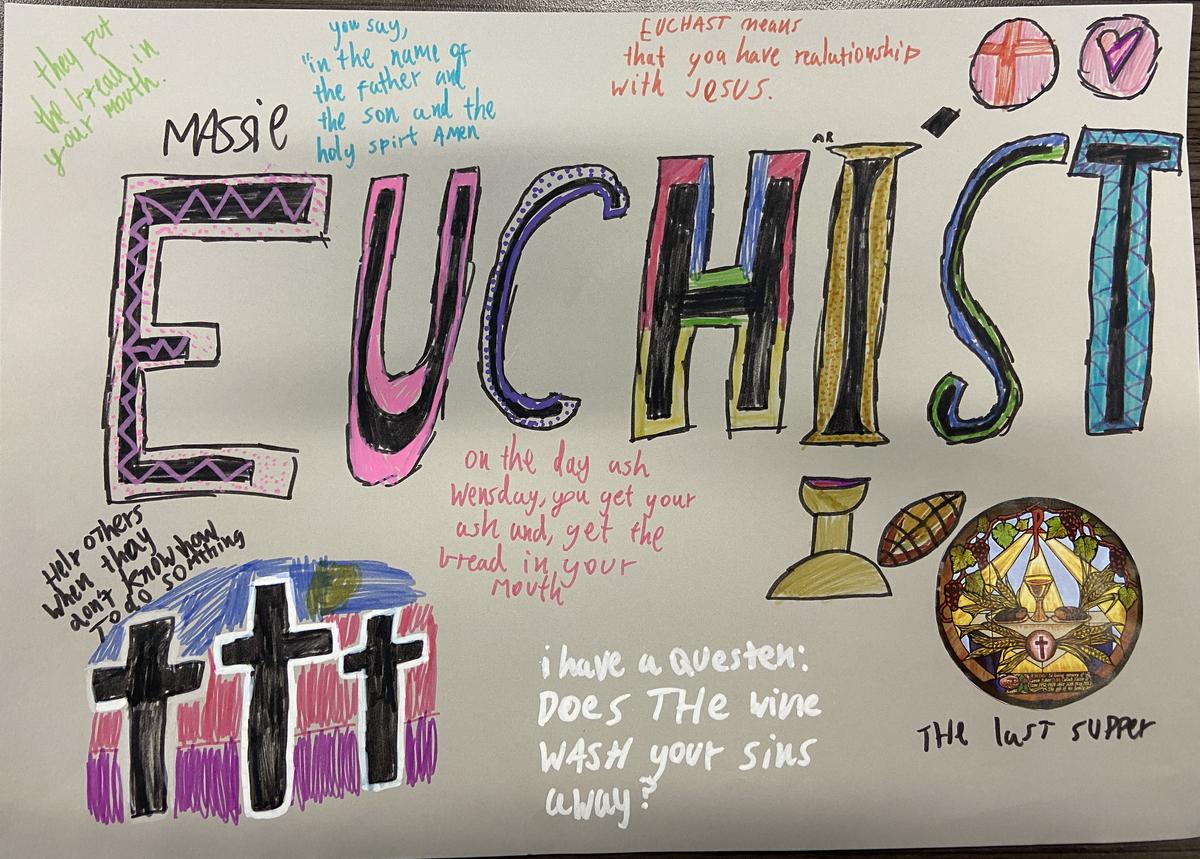 they put
the bread in
your mouth.
you say,
"in the name of
the father and
the son and the
holy spirt Amen
EUCHAST means
that you have realutionship
with JESUS.
MASSiE
AR
EUCHIST
on the day ash
Wensday, you get your
ash and, get the
bread in your
mouth
Help others
when thay
don't know how
To do somthing
i have a Questen:
DOES THE wine
WASH your sins
away?
THE last supper